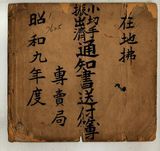 在地拂
小切手
振出濟
通知書送付簿
專賣局
昭和九年度